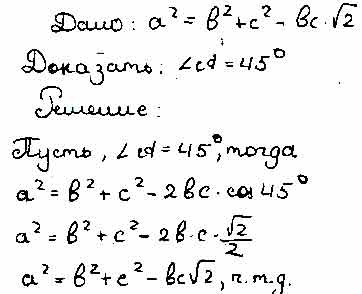 Дано: a² = b² + c² - bc·√2
Доказать: ∠α = 45°
Решение:
Пусть, ∠α = 45°, тогда
a² = b² + c² - 2bc·cos 45°
a² = b² + c² - 2b·c·√2/2
a² = b² + c² - bc√2, ч.т.д.